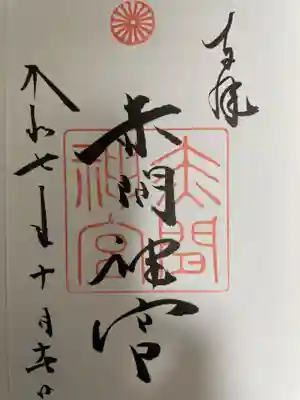 奉拝
赤間神宮
赤間
神宮
令和七年十月